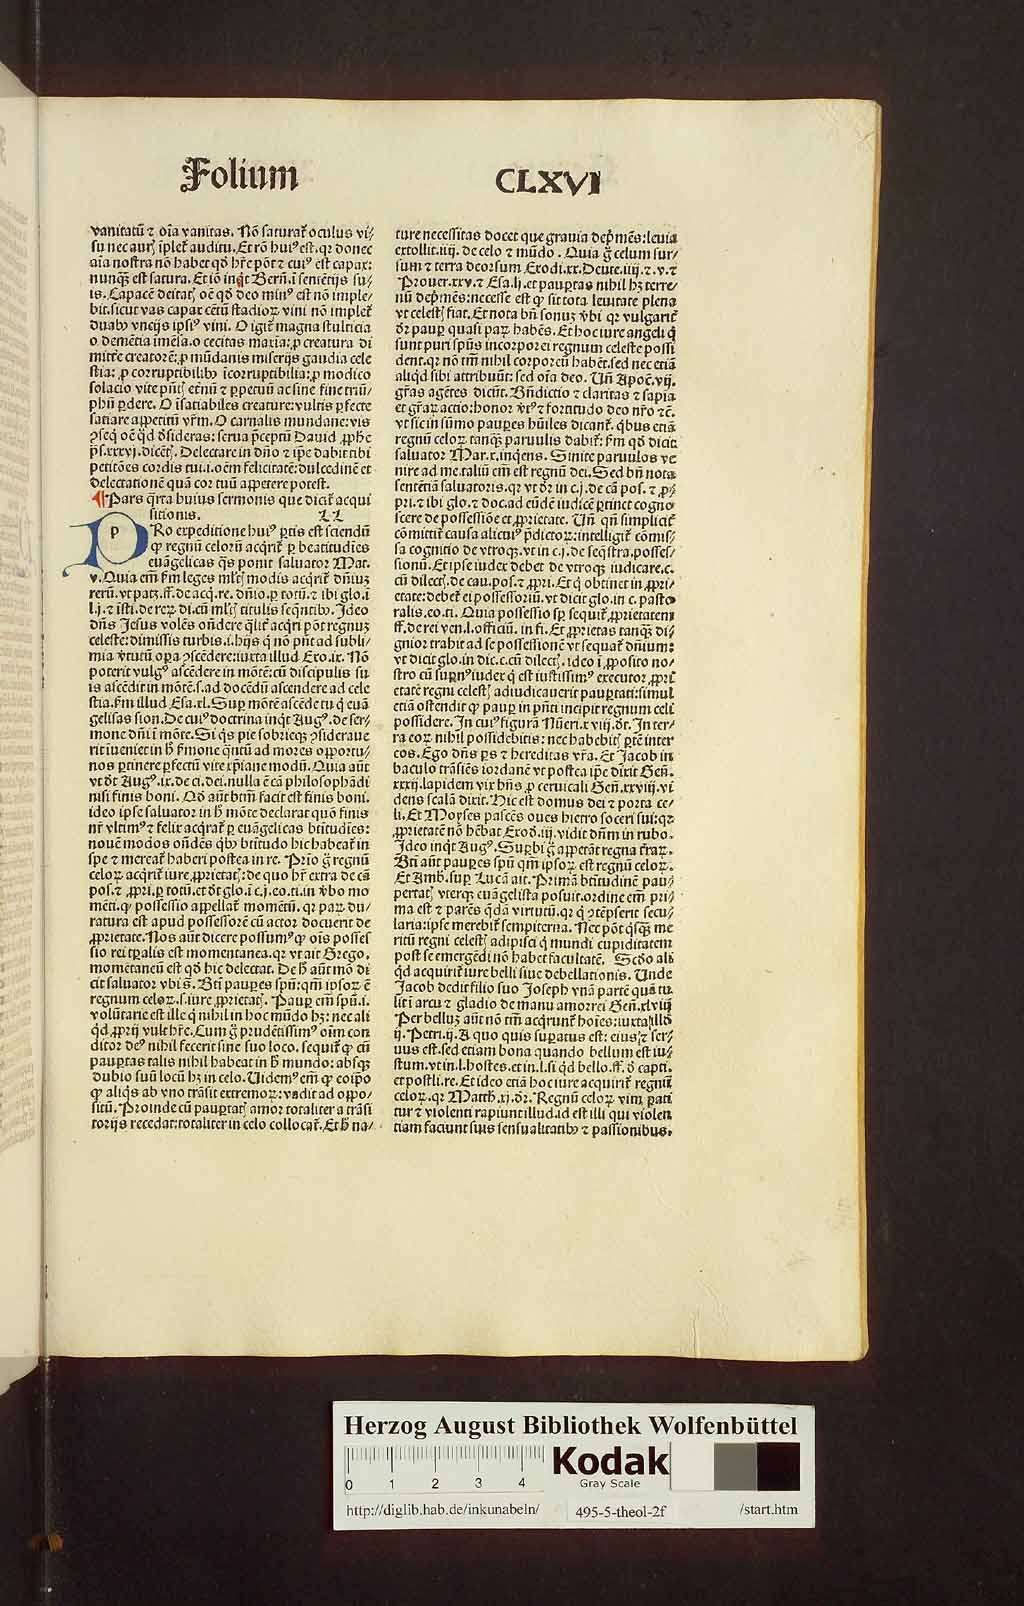 Folium CLXVI
vanitatū ⁊ oīa vanitas. Nō saturat̄ oculus vi⸗
su nec aurꝭ īplet̄ auditu. Et rō huiꝰ est. qꝛ donec
aīa nostra nō habet qď hr̄e pōt ⁊ cuiꝰ est capax:
nunqꝫ est satura. Et iō inqͥt Bern̄. ī sentētijs su⸗
is. Capacē deitatꝭ oē qď deo minꝰ est nō imple⸗
bit. sicut vas capax cētū stadioꝝ vini nō implet̄
duabꝰ vncijs ipsiꝰ vini. O igit̄ magna stulticia
o demētia imēsa. o cecitas maxīa: ꝓ creatura di
mittr̄e creatorē: ꝓ mūdanis miserijs gaudia cele
stia: ꝓ corruptibilibꝰ īcorruptibilia: ꝓ modico
solacio vite pn̄tꝭ et̄nū ⁊ ꝑpetuū ac sine fine triū⸗
phū ꝑdere. O īsatiabiles creature: vultis ꝑfecte
satiare appetitū vr̄m. O carnalis mundane: vis
ꝯseqͥ oē qď ďsideras: serua p̄ceptū Dauid ꝓphe
p̄s. xxxvj. dicētꝭ. Delectare in dn̄o ⁊ ip̄e dabit tibi
petitōes cordis tui. i. oēm felicitatē: dulcedinē et
delectationē quā cor tuū appetere potest.
¶ Pars qͣrta huius sermonis que dicit̄ acqui
sitionis. LL
p
Ro expeditione huiꝰ ꝑtis est sciendū
ꝙ regnū celorū acqͥrit̄ ꝑ beatitudīes
euāgelicas qͣs ponit saluator Mat.
v. Quia em̄ ẜm leges ml̄tꝭ modis acqͥrit̄ dn̄iuꝫ
rerū. vt patꝫ. ff. de acq. re. dn̄io. ꝑ totū. ⁊ ibi glo. ī
l. j. ⁊ īsti. de reꝝ di. cū ml̄tꝭ titulis seqn̄tibꝰ. Ideo
dn̄s Jesus volēs on̄dere qͣlit̄ acqͥri pōt regnuꝫ
celeste: dimissis turbis. i. hijs qͥ nō pn̄t ad subli⸗
mia v̓tutū oꝑa ꝯscēdere: iuxta illud Exo. ix. Nō
poterit vulgꝰ ascēdere in mōtē: cū discipulis su
is ascēdit in mōtē. s. ad docēdū ascendere ad cele
stia. ẜm illud Esa. xl. Suꝑ mōtē ascēde tu qͥ euā
gelisas sion. De cuiꝰ doctrina inqͥt Augꝰ. de ser⸗
mone dn̄i ī mōte. Si qͥs pie sobrieqꝫ ꝯsideraue
rit īueniet in h̄ ẜmone qͣntū ad mores opportu⸗
nos ꝑtinere ꝑfectū vite xp̄iane modū. Quia aūt
vt dr̄t Augꝰ. ix. de ci. dei. nulla ē cā philosophādi
nisi finis boni. Qď aūt btm̄ facit est finis boni.
ideo ipse saluator in h̄ mōte declarat quō finis
nr̄ vltimꝰ ⁊ felix acqͥrat̄ ꝑ euāgelicas btitudīes:
nouē modos on̄dēs qͥbꝰ btitudo hic habeat̄ in
spe ⁊ mereat̄ haberi postea in re. Prīo g̊ regnū
celoꝝ acqͥrit̄ iure ꝓprietatꝭ: de quo hr̄ extra de cā
pos. ⁊ ꝓpri. ꝑ totū. et dr̄t glo. ī c. j. eo. ti. in v̓bo mo
mēti. ꝙ possessio appellat̄ momētū. qꝛ paꝝ du⸗
ratura est apud possessorē cū actor docuerit de
ꝓprietate. Nos aūt dicere possumꝰ ꝙ oīs posses
sio rei tꝑalis est momentanea. qꝛ vt ait Grego.
momētaneū est qď hic delectat. De h̄ aūt mō di
cit saluator vbi s̄. Bt̄i pauꝑes spū: qm̄ ipsoꝝ ē
regnum celoꝝ. s. iure ꝓprietatꝭ. Pauꝑ em̄ spū. i.
volūtarie est ille qͥ nihil in hoc mūdo hꝫ: nec ali
qͥd ꝓprij vult hr̄e. Cum g̊ prudētissimꝰ oīm con
ditor deꝰ nihil fecerit sine suo loco. sequit̄ ꝙ cū
pauꝑtas talis nihil habeat in h̄ mundo: absqꝫ
dubio suū locū hꝫ in celo. Uidemꝰ em̄ ꝙ coīpō
ꝙ aliqͥs ab vno trāsit extremoꝝ: vadit ad oppo⸗
sitū. Proinde cū pauꝑtatꝭ amor totaliter a trāsi
torijs recedat: totaliter in celo collocat̄. Et h̄ na⸗
ture necessitas docet que grauia dep̄mēs: leuia
extollit. iiij. de celo ⁊ mūdo. Quia g̊ celum sur⸗
sum ⁊ terra deorsum Exodi. xx. Deute. iiij. ⁊. v. ⁊
Prouer. xxv. ⁊ Esa. lj. et pauꝑtas nihil hꝫ terre⸗
nū dep̄mēs: necesse est ꝙ sit tota leuitate plena
vt celestꝭ fiat. Et nota bn̄ sonuꝫ v̓bi qꝛ vulgarit̄
dr̄ pauꝑ quasi paꝝ habēs. Et hoc iure angeli qͥ
sunt puri spūs incorporei regnum celeste possi
dent. qꝛ nō tm̄ nihil corporeū habēt. sed nec etiā
aliqͥd sibi attribuūt: sed oīa deo. Un̄ Apoc̄. vij.
gr̄as agētes dicūt. Bn̄dictio ⁊ claritas ⁊ sapīa
et gr̄aꝝ actio: honor v̓tꝰ ⁊ fortitudo deo nr̄o ⁊c̄.
vt sic in sūmo pauꝑes hūiles dicant̄. qͥbus etiā
regnū celoꝝ tanqꝫ paruulis dabit̄: ẜm qď dicit
saluator Mar. x. inqͥens. Sinite paruulos ve
nire ad me. taliū em̄ est regnū dei. Sed bn̄ nota
sentētiā saluatoris. qꝛ vt dr̄ in c. j. de cā pos. ⁊ ꝓ⸗
pri. ⁊ ibi glo. ⁊ doc. ad eūdē iudicē ꝑtinet cogno
scere de possessiōe et ꝓprietate. Un̄ qn̄ simplicit̄
cōmittit̄ causa alicuiꝰ p̄dictoꝝ: intelligit̄ cōmis⸗
sa cognitio de vtroqꝫ. vt in c. j. de seqͣstra. posses⸗
sionū. Et ipse iudex debet de vtroqꝫ iudicare. c.
cū dilectꝭ. de cau. pos. ⁊ ꝓpri. Et qͥ obtinet in ꝓpri⸗
etate: debet̄ ei possessoriū. vt dicit glo. in c. pasto
ralis. eo. ti. Quia possessio sꝑ sequit̄ ꝓprietatem
ff. de rei ven. l. officiū. in fi. Et ꝓprietas tanqꝫ di⸗
gnior trahit ad se possessionē vt sequat̄ dn̄ium:
vt dicit glo. in dic. c. cū dilectꝭ. ideo ī ꝓposito no⸗
stro cū suꝑnꝰ iudex qͥ est iustissimꝰ executor ꝓpri
etatē regni celestꝭ adiudicauerit pauꝑtati: simul
etiā ostendit ꝙ pauꝑ in pn̄ti incipit regnum celi
possidere. In cuiꝰ figurā Nūeri. xviij. dr̄. In ter⸗
ra eoꝝ nihil possidebitis: nec habebitꝭ ꝑtē inter
eos. Ego dn̄s ꝑs ⁊ hereditas vr̄a. Et Jacob in
baculo trāsiēs iordanē vt postea ip̄e dixit Gen̄.
xxxij. lapidem vix hn̄s ꝓ ceruicali Gen̄. xxviij. vi
dens scalā dixit. Hic est domus dei ⁊ porta ce⸗
li. Et Moyses pascēs oues hietro soceri sui: qꝛ
ꝓprietatē nō hēbat Exoď. iij. vidit dn̄m in rubo.
Ideo inqͥt Augꝰ. Suꝑbi g̊ appetāt regna tr̄aꝝ.
Bt̄i aūt pauꝑes spū qm̄ ipsoꝝ est regnū celoꝝ.
Et Amb. suꝑ Lucā ait. Primā btitudinē pau⸗
ꝑtatꝭ vterqꝫ euāgelista posuit. ordine em̄ pri⸗
ma est ⁊ parēs qͣdā virtutū. qꝛ qͥ ꝯtēpserit secu⸗
laria: ipse merebit̄ sempiterna. Nec pōt qͥsqꝫ me
ritū regni celestꝭ adipisci qͥ mundi cupiditatem
post se emergēdi nō habet facultatē. Scďo ali
qͥd acquirit̄ iure belli siue debellationis. Unde
Jacob dedit filio suo Joseph vnā partē quā tu
lit ī arcu ⁊ gladio de manu amorrei Gen̄. xlviij
Per belluꝫ aūt nō tm̄ acqͥrunt̄ hoīes: iuxta illď
ij. Petri. ij. A quo quis suꝑatus est: eiusꝫ ser⸗
uus est. sed etiam bona quando bellum est iu⸗
stum. vt in. l. hostes. et in. l. si qͥd bello. ff. ď capti.
et postli. re. Et ideo etiā hoc iure acquirit̄ regnū
celoꝝ. qꝛ Matth. xj. dr̄. Regnū celoꝝ vim ꝑati
tur ⁊ violenti rapiunt illud. id est illi qui violen
tiam faciunt suis sensualitatibꝰ ⁊ passionibus.
Herzog August Bibliothek Wolfenbüttel
0 1 2 3 4
Kodak
Gray Scale
http://diglib.hab.de/inkunabeln/ 495-5-theol-2f /start.htm